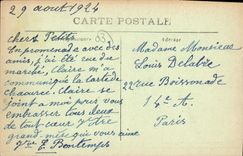 29 août 1924
CARTE POSTALE
chers Petits
En promenade avec des
amis, j'ai été rue du
marché, Claire m'a
communiqué la carte de
chaource. Claire se
joint a moi pour vous
embrasser tous deux
de tout cœur Votre
grand mère qui vous aime
Vve E. Bontemps
Madame Monsieur
Louis Delabre
22 rue Boissonade
14e A.
Paris